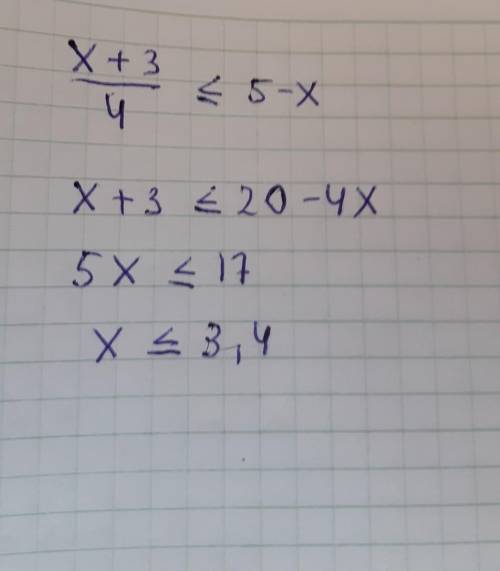 x + 3
4
≤ 5 - x
x + 3 ≤ 20 - 4x
5x ≤ 17
x ≤ 3,4